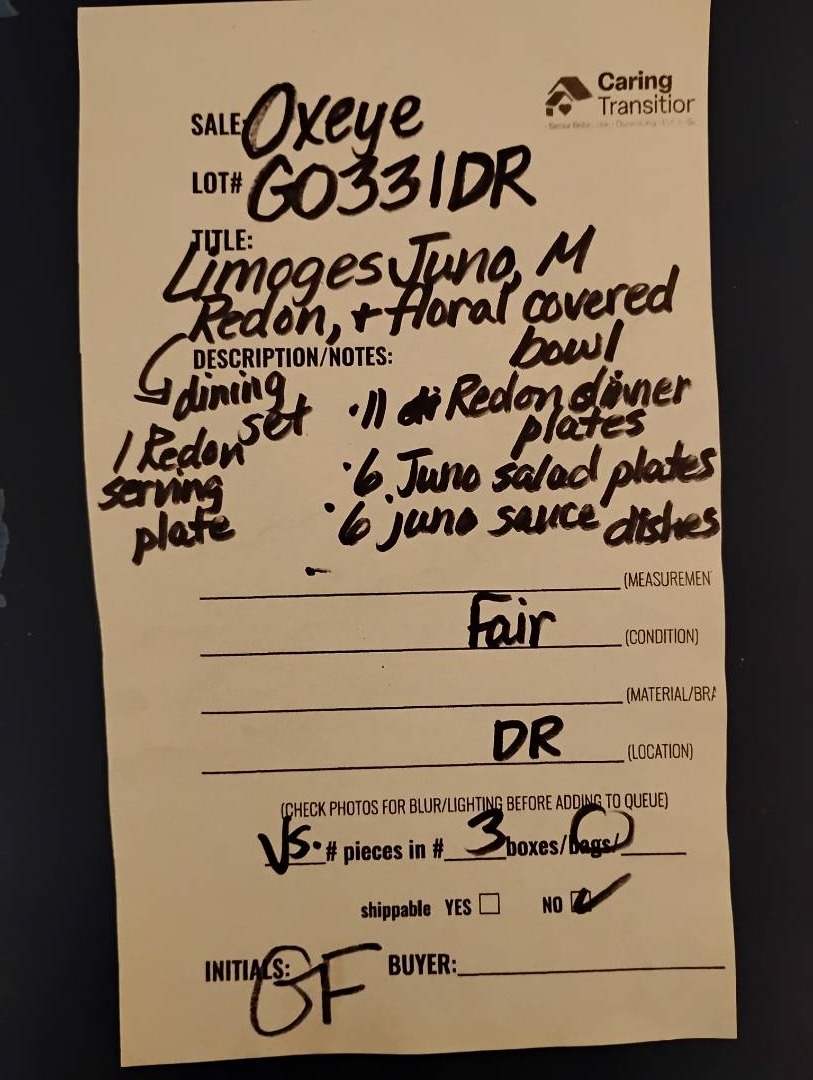 Caring
Transition
SALE: Oxeye
LOT# GO331DR
TITLE:
Limoges Juno, M
Redon, + floral covered
bowl
DESCRIPTION/NOTES:
dining
set
1 Redon
serving
plate
·11 Redon dinner
plates
·6 Juno salad plates
·6 juno sauce dishes
(MEASUREMEN
Fair (CONDITION)
(MATERIAL/BRA
DR (LOCATION)
(CHECK PHOTOS FOR BLUR/LIGHTING BEFORE ADDING TO QUEUE)
VS. # pieces in # 3 boxes/bags/
shippable YES NO
INITIALS: GF BUYER: